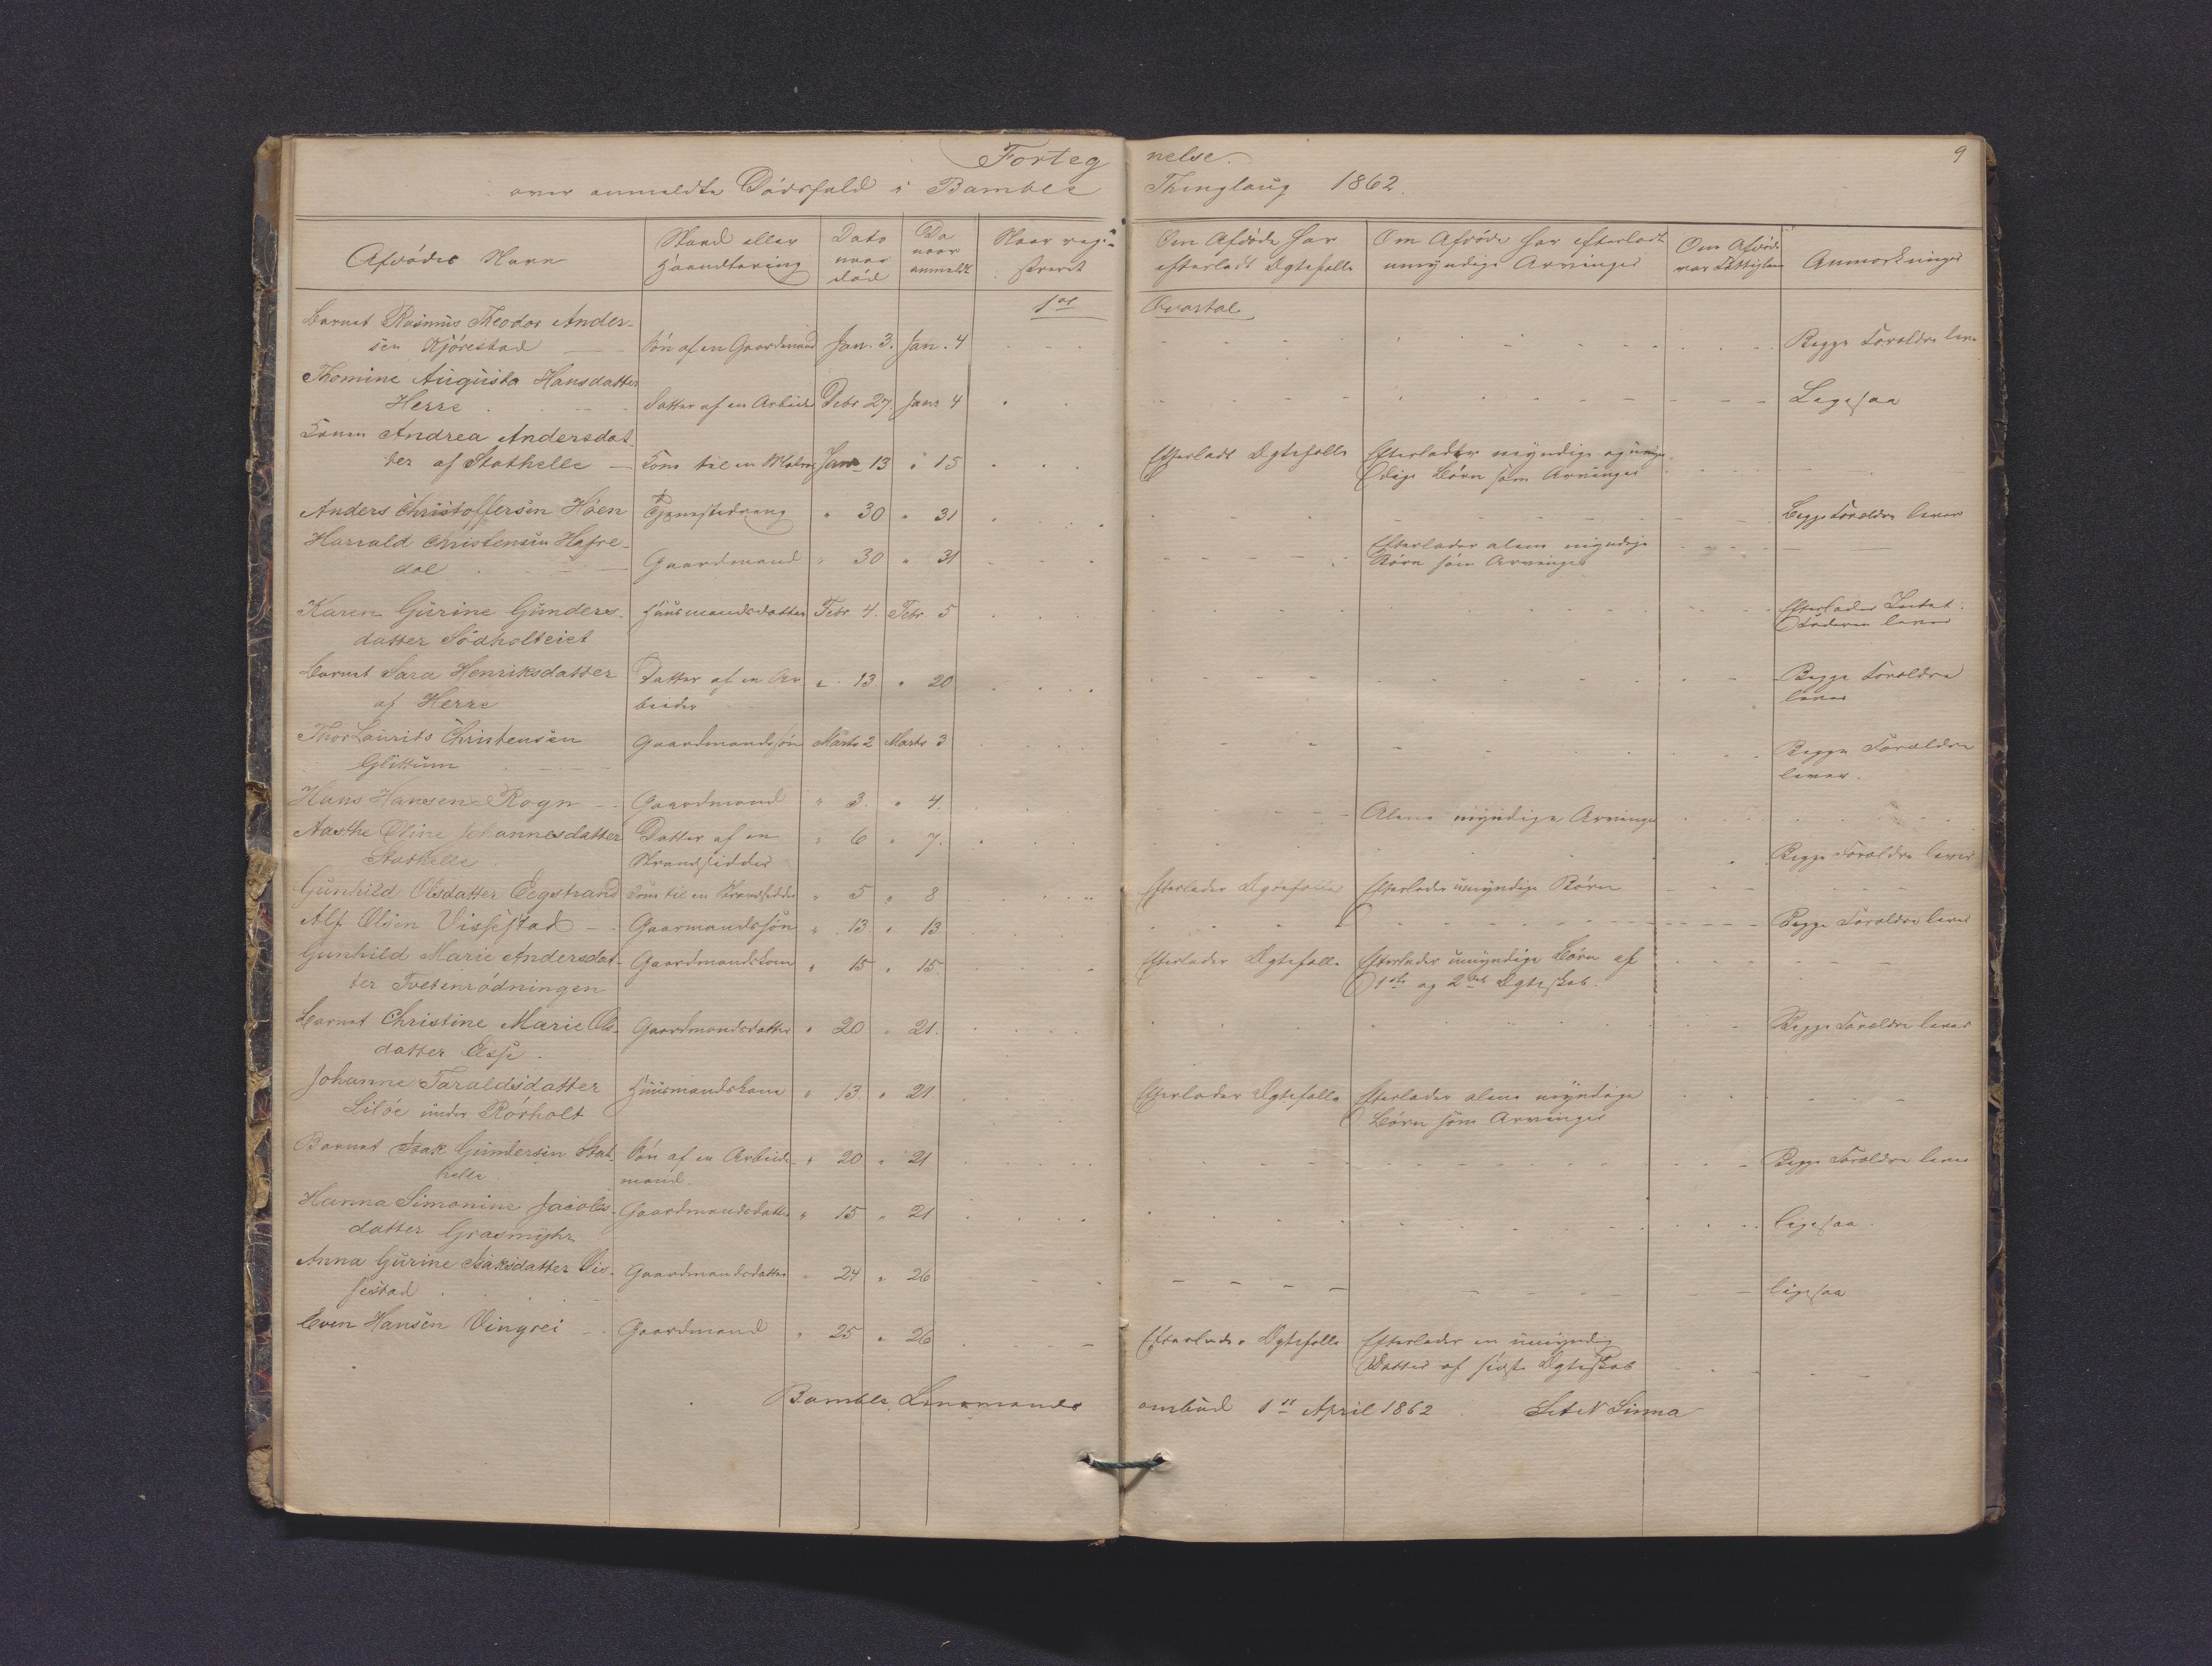 Forteg nelse. 9
over anmeldte Dödsfald i Bamble Thinglaug 1862.
Afdödes Navn Stand eller Haandtering Dato naar död Do naar anmeldt Naar regi-streret Om Afdöde har efterladt Egtefælle Om Afdöde har efterladt umyndige Arvinger Om Afdöde var Fattiglem Anmærkninger
1ste Qvartal
Barnet Rasmus Theodor Ander-
sen Kjörestad Sön af en Gaardmand Jan. 3. Jan. 4 Begge Forældre leve
Thomine Augusta Hansdatter
Herre Datter af en Arbeid Debr 27. Janr 4 Ligesaa
Konen Andrea Andersdat-
ter af Stathelle Kone til en Jan 13 " 15 Efterladt Egtefælle Efterlader myndige og umyn-
dige Börn som Arvinger
Anders Christoffersen Höen Tjenestedreng " 30 " 31 Begge Forældre lever
Harrald Christensen Hafre-
dal Gaardmand " 30 " 31 Efterlader alene myndige
Börn som Arvinger
Karen Gurine Gunders-
datter Södholteiet Huusmandsdatter Febr. 4. Febr. 5 Efterlader Intet.
Faderen lever
Barnet Sara Henriksdatter Datter af en Ar " 13. " 20 Begge Forældre
af Herre beider lever
Thor Laurits Christensen Gaardmandssön Marts 2 Marts 3 Begge Forældre
Glittum lever.
Hans Hansen Rogn Gaardmand " 3. " 4. Alene myndige Arvinger
Aasthe Oline Johannesdatter Datter af en " 6 " 7. Begge Forældre lever
Stathelle Strandsidder
Gunhild Olsdatter Eegstrand Kone til en Strandsidder " 5 " 8 Efterlader Egtefælle Efterlader umyndige Börn
Alf Olsen Vissestad Gaarmandssön " 13. " 13 Begge Forældre lever
Gunhild Marie Andersdat- Gaardmandskone " 15 " 15. Efterlader Egtefælle Efterlader umyndige Börn af
ter Tvetenrödningen 1ste og 2det Egteskab.
Barnet Christine Marie Ols- Gaardmandsdatter " 20 " 21. Begge Forældre lever
datter
Johanne Taraldsdatter Huusmandskone " 13. " 21 Efterlader Egtefælle Efterlader alene myndige
Lilöe under Rörholt Börn som Arvinger
Barnet Isak Gundersen Stat- Sön af en Arbeids- " 20 " 21 Begge Forældre lever
helle mand.
Hanna Simonine Jacobs- Gaardmandsdatter " 15 " 21 ligesaa.
datter Grasmyhr
Anna Gurine Isaksdatter Vis- Gaardmandsdatter " 24 " 26 ligesaa
sestad
Even Hansen Vingrei Gaardmand " 25 " 26 Efterlader Egtefælle Efterlader en umyndig
Datter af sidste Egteskab
Bamble Lensmands ombud 1st April 1862